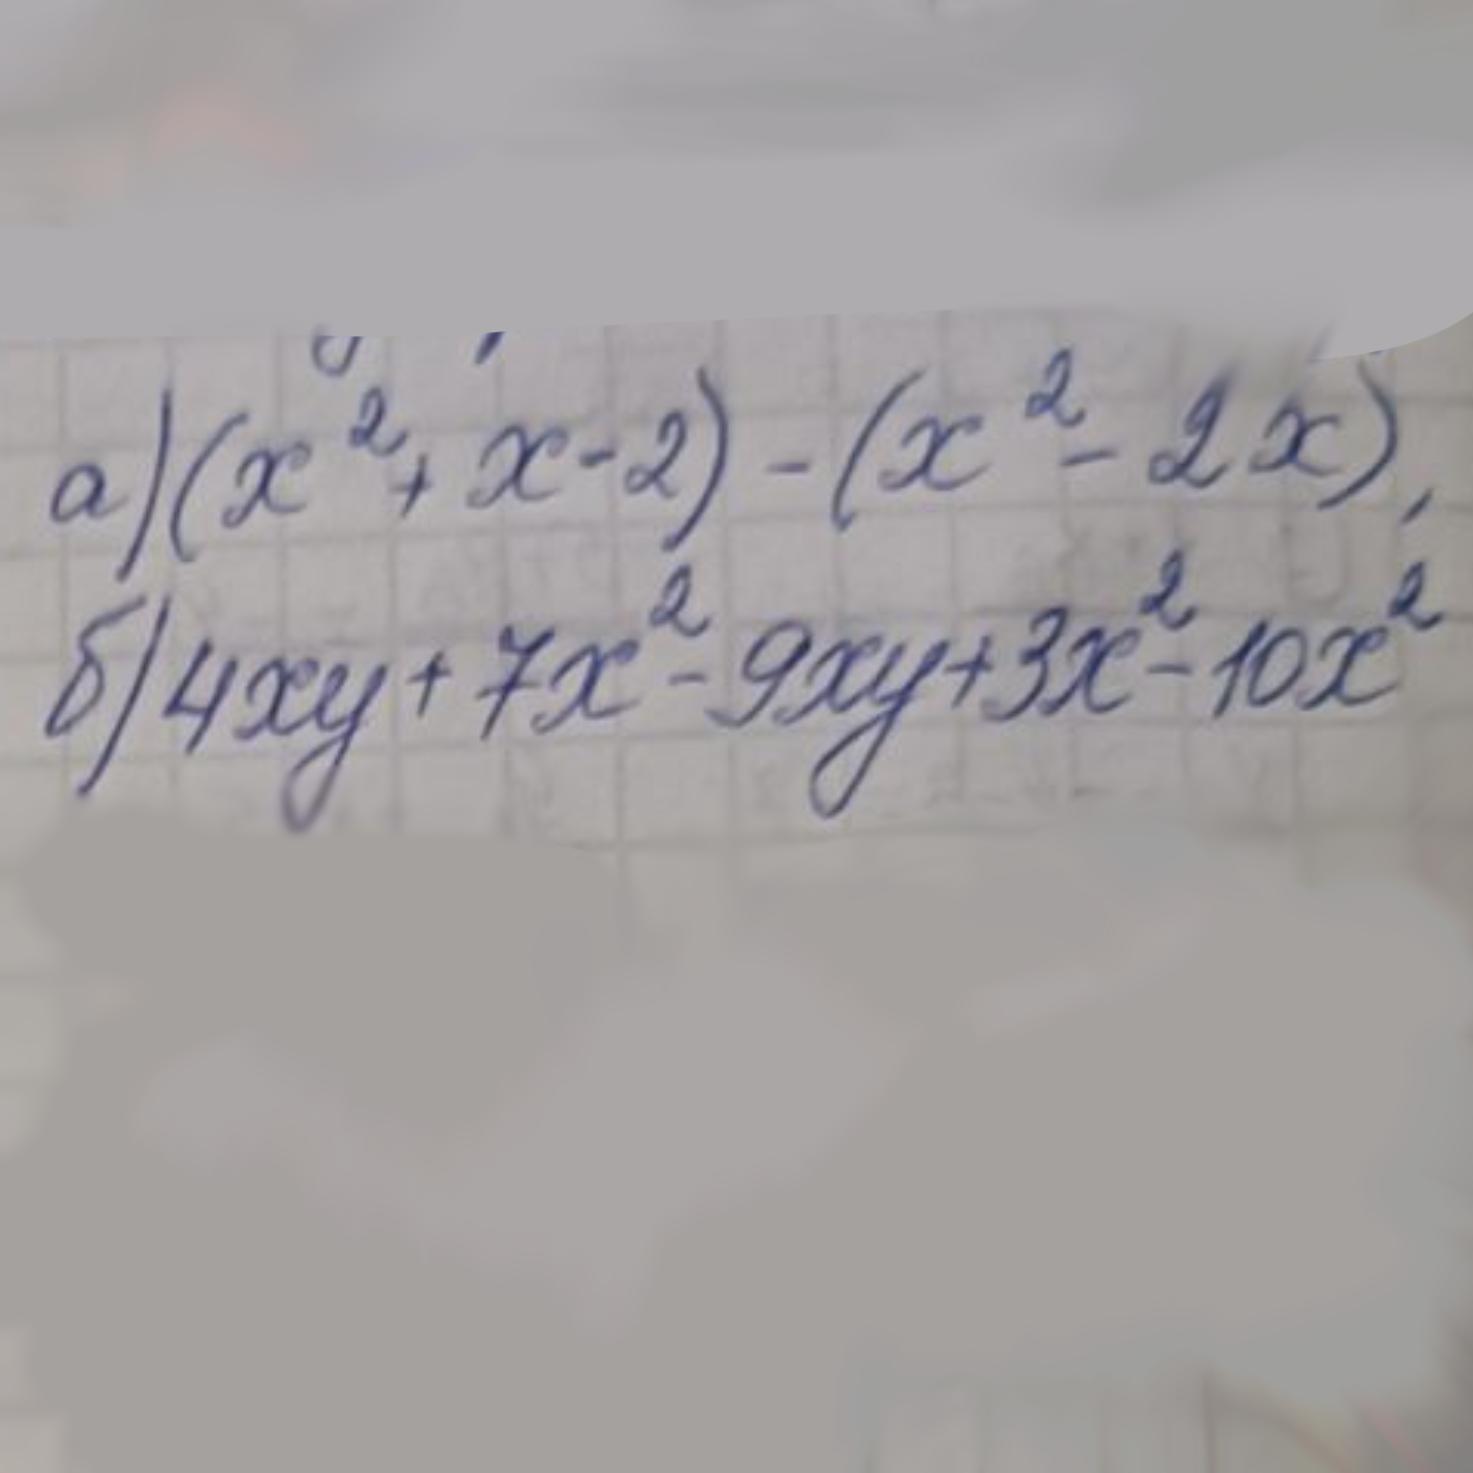 а) (x² + x - 2) - (x² - 2x),
б) 4xy + 7x² - 9xy + 3x² - 10x²